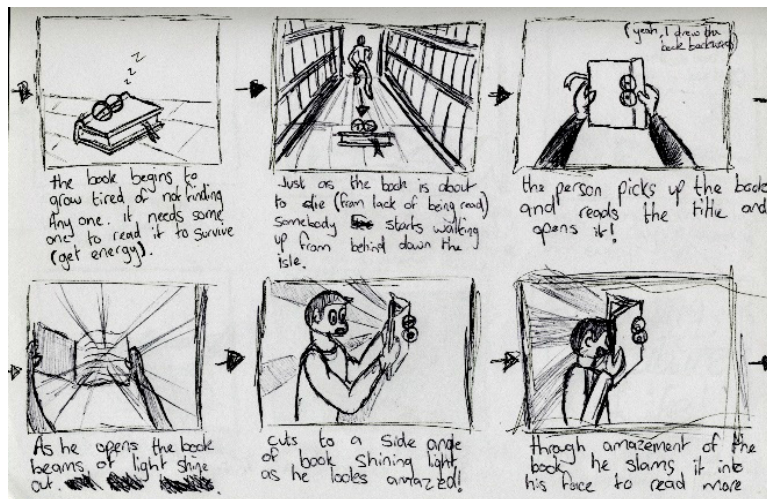 z
z
z
the book begins to
grow tired of not finding
Any one. it needs some
one to read it to survive
(get energy).
Just as the book is about
to die (from lack of being read)
Somebody starts walking
up from behind down the
isle.
(yeah, I drew the
book backwards)
the person picks up the book
and reads the title and
opens it!
As he opens the book
beams of light shine
out.
cuts to a side angle
of book shining light
as he lookes amazed!
through amazement of the
book he slams it into
his face to read more